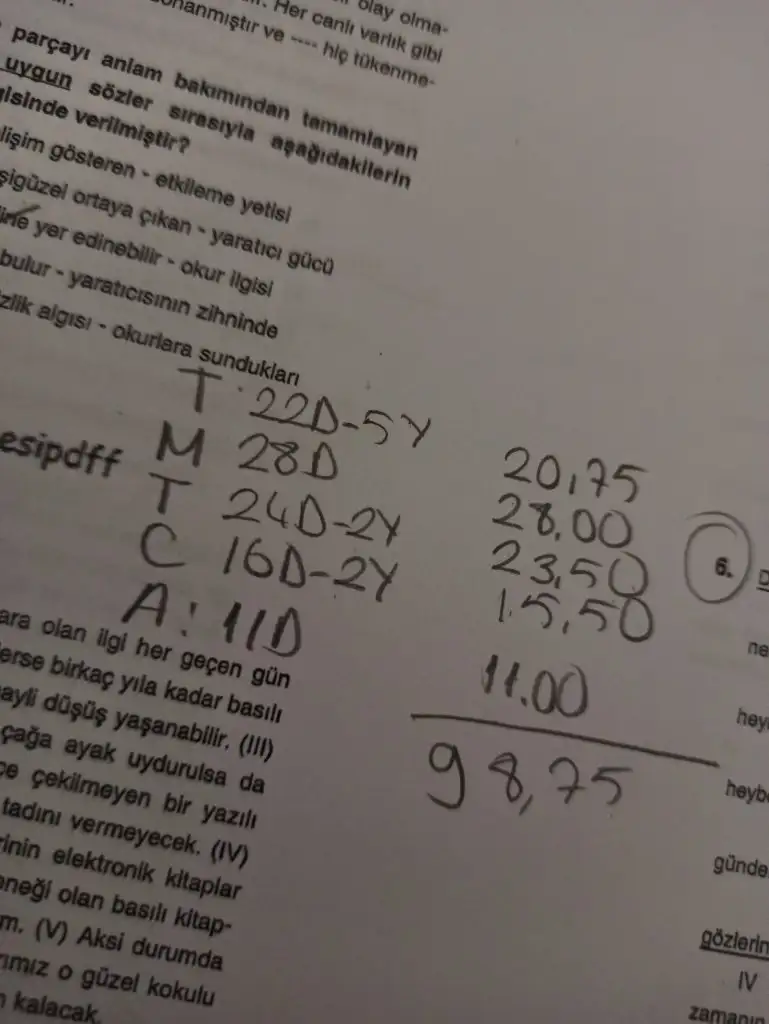 olay olma-
Her canlı varlık gibi
ve ---- hiç tükenme-
parçayı anlam bakımından tamamlayan
uygun sözler sırasıyla aşağıdakilerin
verilmiştir?
gösteren - etkileme yetisi
ortaya çıkan - yaratıcı gücü
yer edinebilir - okur ilgisi
bulur - yaratıcısının zihninde
algısı - okurlara sundukları
T 22D-5Y 20,75
esipdff M 28D 28,00
T 24D-2Y 23,50
C 16D-2Y 15,50
A: 11D 11.00
98,75
olan ilgi her geçen gün
birkaç yıla kadar basılı
düşüş yaşanabilir. (III)
çağa ayak uydurulsa da
çekilmeyen bir yazılı
tadını vermeyecek. (IV)
elektronik kitaplar
olan basılı kitap-
(V) Aksi durumda
o güzel kokulu
kalacak.
6.
ne
hey
heyb
günde
gözlerin
IV
zamanın